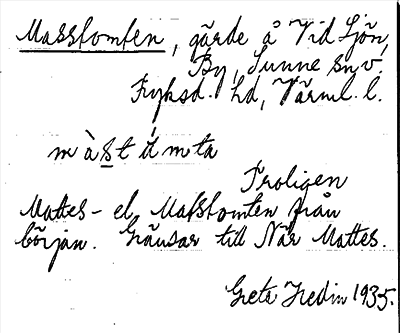 Masstomten, gärde å Vid Sjön,
By, Sunne sn v.
Fryksd. hd, Värml. l.
màstómta
Troligen
Mattes- el. Matstomten från
början. Gränsar till När Mattes.
Greta Hedin 1935.